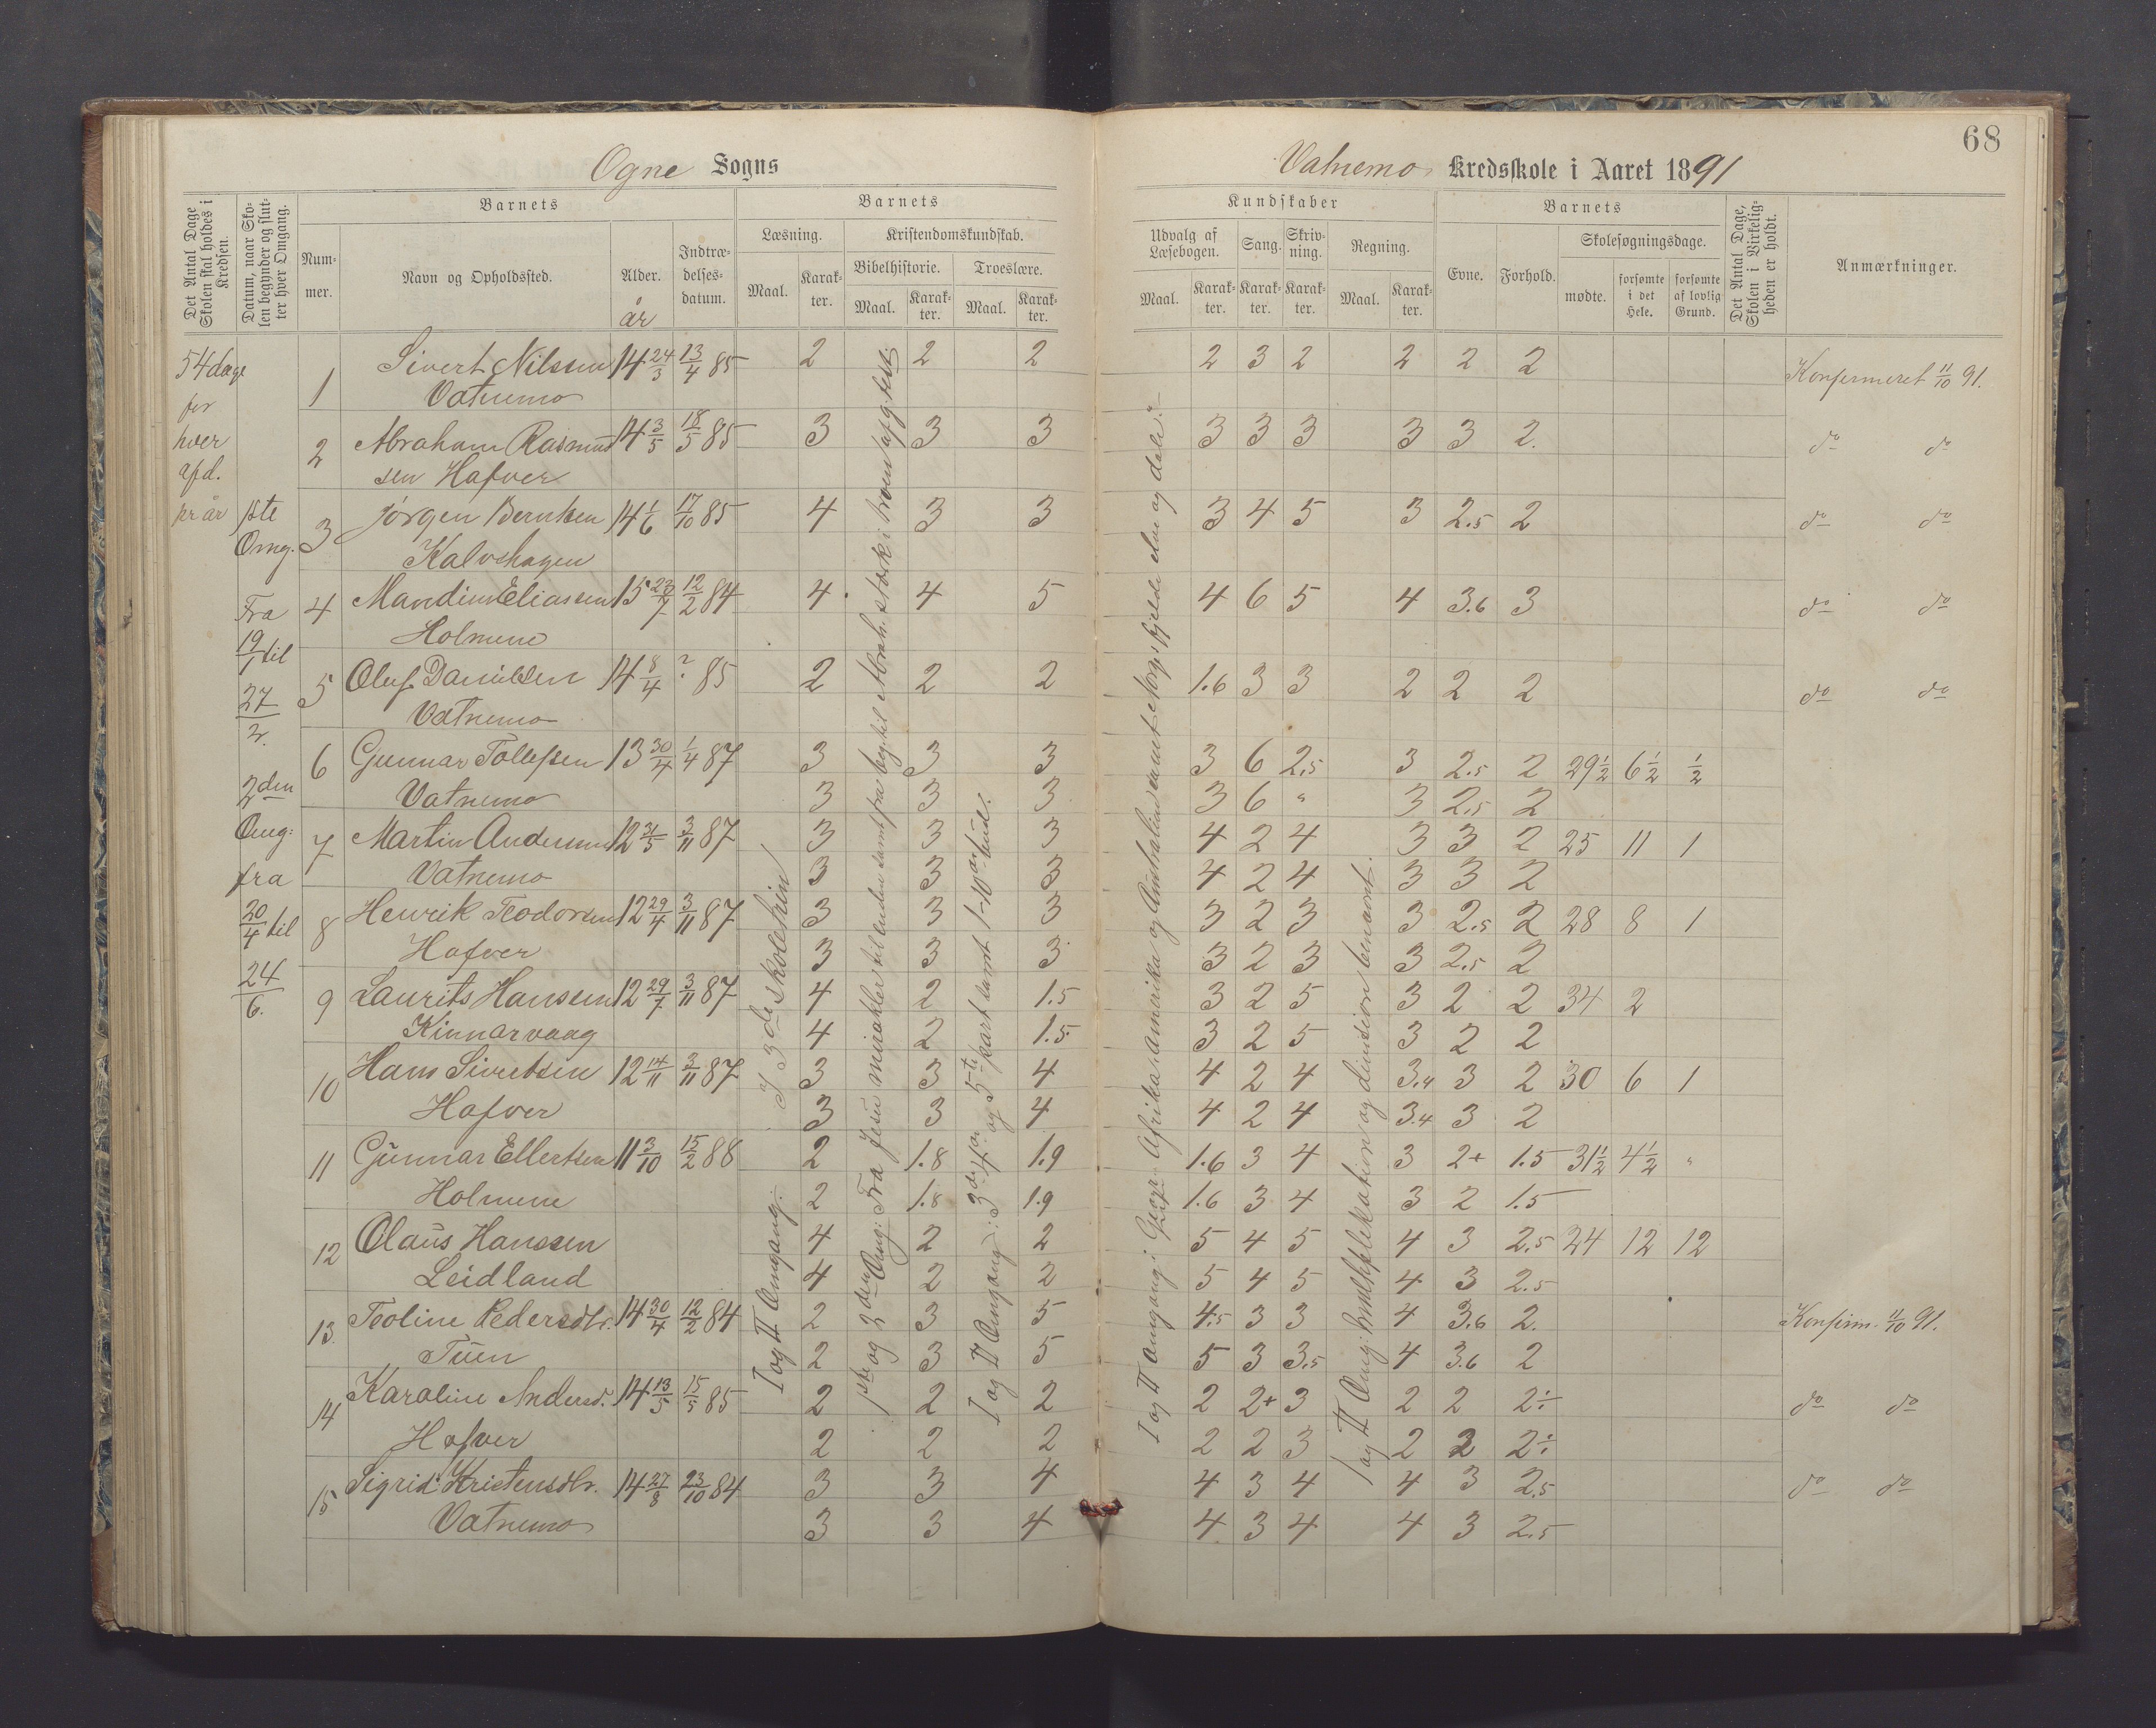 68
Ogne Sogns
Vatnemo Kredsskole i Aaret 1891
Det Antal Dage Skolen skal holdes i Kredsen.
Datum, naar Skolen begynder og slutter hver Omgang.
Barnets
Nummer.
Navn og Opholdssted.
Alder.
år
Indtrædelsesdatum.
Barnets
Læsning.
Maal.
Karakter.
Kristendomskundskab.
Bibelhistorie.
Maal.
Karakter.
Troeslære.
Maal.
Karakter.
Kundskaber
Udvalg af Læsebogen.
Maal.
Karakter.
Sang.
Karakter.
Skrivning.
Karakter.
Regning.
Maal.
Karakter.
Barnets
Evne.
Forhold.
Skolesøgningsdage.
mødte.
forsømte i det Hele.
forsømte af lovlig Grund.
Det Antal Dage, Skolen i Virkeligheden er holdt.
Anmærkninger.
54 dage
for
hver
afd.
pr år
1ste
Omg.
Fra
19/1 til
27/2.
2den
Omg:
fra
20/4 til
24/6.
1 Sivert Nilssen 14 24/3 13/4 85 2 2 2 2 3 2 2 2 2 Konfirmeret 11/10 91.
Vatnemo
2 Abraham Rasmus 14 3/5 18/5 85 3 3 3 3 3 3 3 3 2. do do
sen Hafver
3 Jörgen Berntsen 14 1/6 17/10 85 4 3 3 3 4 5 3 2.5 2 do do
Kalvshagen
4 Mandius Eliassen 15 27/7 12/2 84 4 4 5 4 6 5 4 3.6 3 do do
Holmene
5 Oluf Danielsen 14 8/4 ? 85 2 2 2 1.6 3 3 2 2 2 do do
Vatnemo
6 Gunnar Tollefsen 13 30/4 1/4 87 3 3 3 3 6 2.5 3 2.5 2 29½ 6½ ½
Vatnemo 3 3 3 3 6 " 3 2.5 2
7 Martin Andersen 12 31/5 3/11 87 3 3 3 4 2 4 3 3 2 25 11 1
Vatnemo 3 3 3 4 2 4 3 3 2
8 Henrik Teodorsen 12 29/4 3/11 87 3 3 3 3 2 3 3 2.5 2 28 8 1
Hafver 3 3 3 3 2 3 3 2.5 2
9 Laurits Hansen 12 29/7 3/11 87 4 2 1.5 3 2 5 3 2 2 34 2
Kinnarvaag 4 2 1.5 3 2 5 3 2 2
10 Hans Sivertsen 12 14/11 3/11 87 3 3 4 4 2 4 3.4 3 2 30 6 1
Hafver 3 3 4 4 2 4 3.4 3 2
11 Gunnar Ellertsen 11 3/10 15/2 88 2 1.8 1.9 1.6 3 4 3 2+ 1.5 31½ 4½ "
Holmene 2 1.8 1.9 1.6 3 4 3 2 1.5
12 Olaus Hanssen 4 2 2 5 4 5 4 3 2.5 24 12 12
Leidland 4 2 2 5 4 5 4 3 2.5
13. Teoline Pedersdtr. 14 30/4 12/2 84 2 3 5 4.5 3 3 4 3.6 2. Konfirm. 11/10 91.
Tuen 2 3 5 5 3 3.5 4 3.6 2
14 Karoline Andersd. 14 13/5 15/5 85 2 2 2 2 2+ 3 2 2 2÷ do do
Hafver 2 2 2 2 2 3 2 2 2÷
15 Sigrid Kristensdtr. 14 27/8 23/10 84 3 3 4 4 3 4 4 3 2.5 do do
Vatnemo 3 3 4 4 3 4 4 3 2.5
I og II Omgang: I 3de skoletrin
1ste og 2den Omg: Fra Jesu mirakler til enden samt fra beg. til Abrah.
I og II Omgang: 3die 4de og 5te part samt 1-10de bud.
I og II Omgang: Geogr. Afrika Amerika og Australien samt Norges fjelde elve og dale.
I og II Omg: Multiplikation og division benævnt.